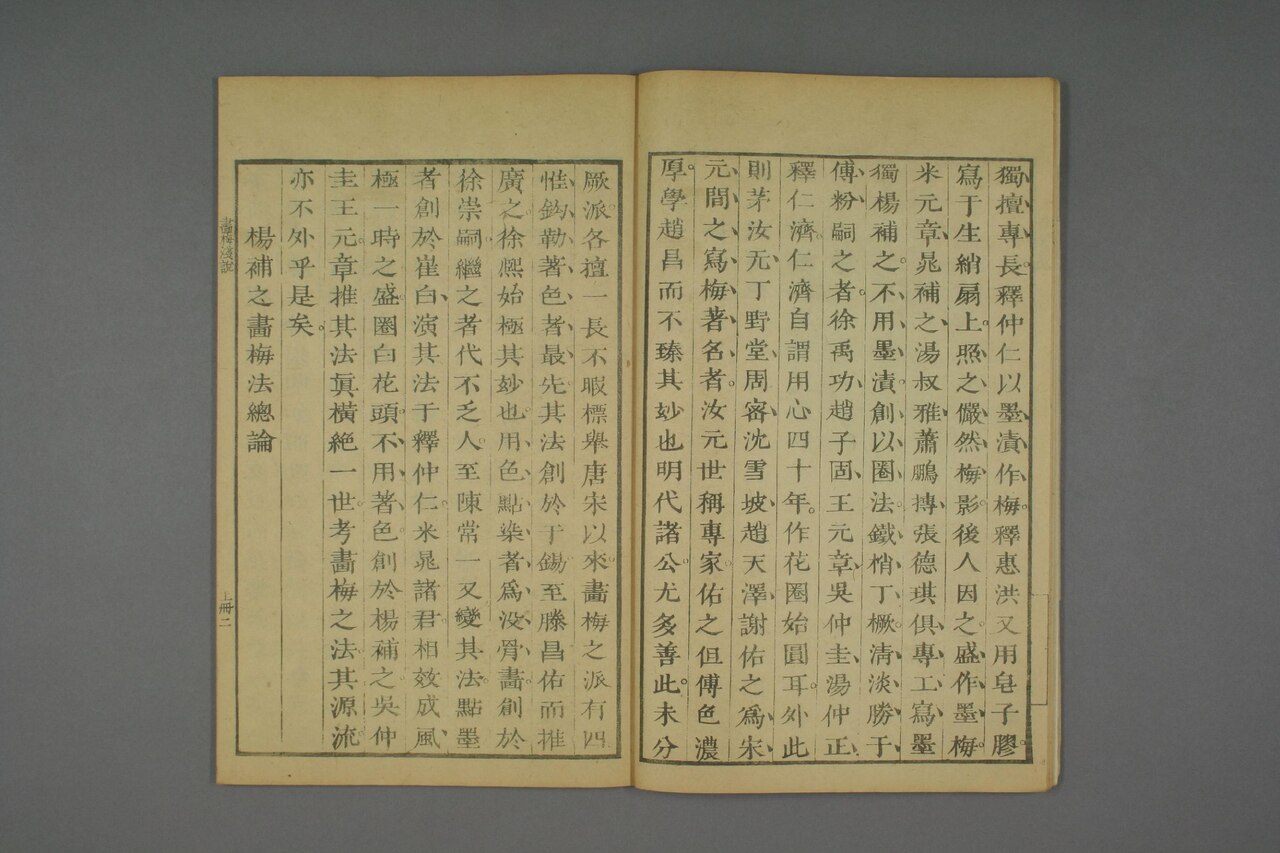 獨擅專長釋仲仁以墨漬作梅釋惠洪又用皂子膠
寫于生綃扇上照之儼然梅影後人因之盛作墨梅
米元章晁補之湯叔雅蕭鵬摶張德琪俱專工寫墨
獨楊補之不用墨漬創以圈法鐵梢丁橛清淡勝于
傅粉嗣之者徐禹功趙子固王元章吳仲圭湯仲正
釋仁濟仁濟自謂用心四十年作花圈始圓耳外此
則茅汝元丁野堂周密沈雪坡趙天澤謝佑之爲宋
元間之寫梅著名者汝元世稱專家佑之但傅色濃
厚學趙昌而不臻其妙也明代諸公尤多善此未分
厥派各擅一長不暇標舉唐宋以來畵梅之派有四
惟鈎勒著色者最先其法創於于錫至滕昌佑而推
廣之徐熙始極其妙也用色點染者爲沒骨畵創於
徐崇嗣繼之者代不乏人至陳常一又變其法點墨
者創於崔白演其法于釋仲仁米晁諸君相效成風
極一時之盛圈白花頭不用著色創於楊補之吳仲
圭王元章推其法眞橫絶一世考畵梅之法其源流
亦不外乎是矣
楊補之畵梅法總論
畵梅淺說
上冊二